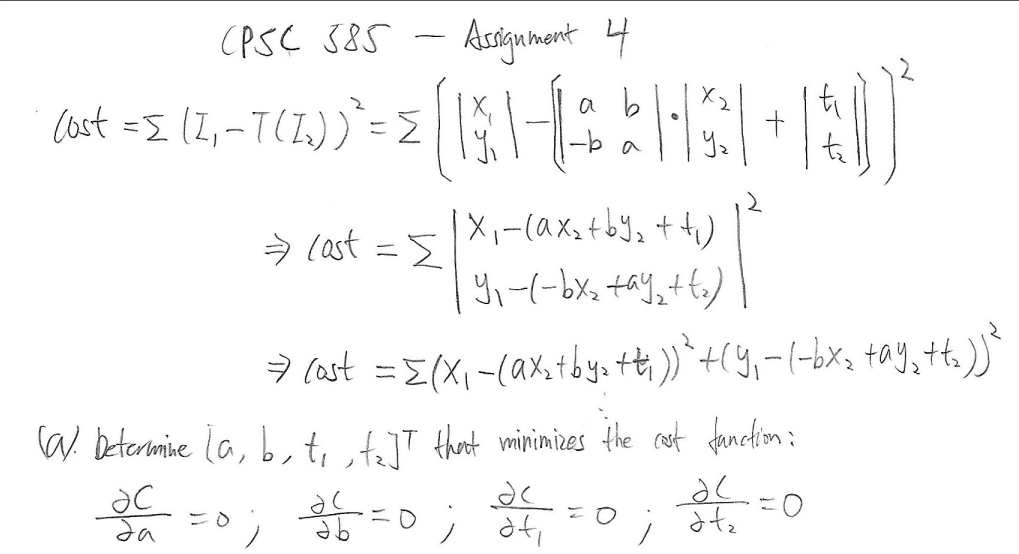 CPSC 585 — Assignment 4
Cost = Σ (I₁ − T(I₂))² = Σ ( |x₁ y₁| − [ |a b −b a| · |x₂ y₂| + |t₁ t₂| ] )²
⇒ Cost = Σ | x₁−(ax₂+by₂+t₁) y₁−(−bx₂+ay₂+t₂) |²
⇒ Cost = Σ(x₁−(ax₂+by₂+t₁))²+(y₁−(−bx₂+ay₂+t₂))²
(a). Determine [a, b, t₁, t₂]ᵀ that minimizes the cost function:
∂C/∂a = 0 ; ∂C/∂b = 0 ; ∂C/∂t₁ = 0 ; ∂C/∂t₂ = 0